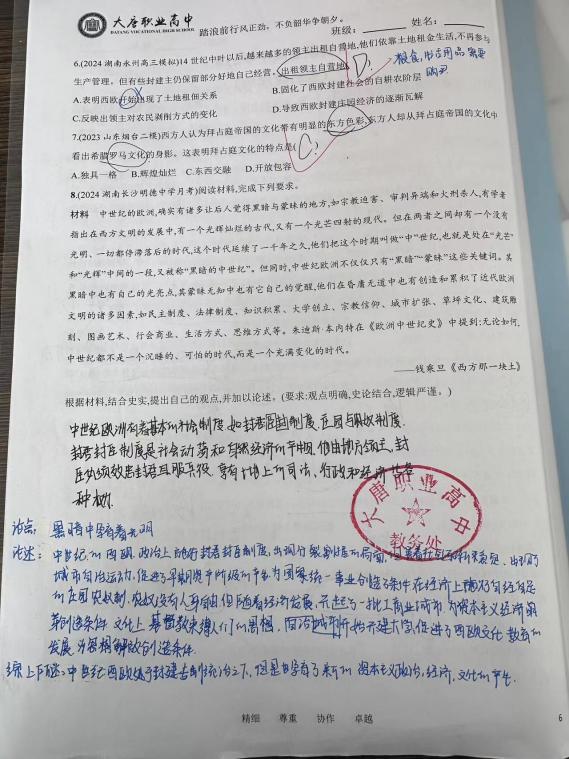 大唐职业高中
DATANG VOCATIONAL HIGH SCHOOL
踏浪前行风正劲，不负韶华争朝夕。
班级：________ 姓名：________
6.(2024湖南永州高三模拟)14世纪中叶以后,越来越多的领主出租自营地,他们依靠土地租金生活,不再参与
生产管理。但有些封建主仍保留部分好地自己经营。出租领主自营地 D:
粮食,生活用品需要
购买
A.表明西欧开始出现了土地租佃关系 B.固化了西欧封建社会的自耕农阶层
C.反映出领主对农民剥削方式的变化 D.导致西欧封建庄园经济的逐渐瓦解
7.(2023山东烟台二模)西方人认为拜占庭帝国的文化带有明显的东方色彩,东方人却从拜占庭帝国的文化中
看出希腊罗马文化的身影。这表明拜占庭文化的特点是( C:
A.独具一格 B.辉煌灿烂 C.东西交融 D.开放包容
8.(2024湖南长沙明德中学月考)阅读材料,完成下列要求。
材料 中世纪的欧洲,确实有诸多让后人觉得黑暗与蒙昧的地方,如宗教迫害、审判异端和火刑杀人,有学者
指出在西方文明的发展中,有一个光辉灿烂的古代,又有一个光芒四射的现代。但在两者之间却有一个没有
光明、一切都停滞后的时代,这个时代延续了一千年之久,他们把这个时期叫做“中”世纪,也就是处在“光芒”
和“光辉”中间的一段,又被称“黑暗的中世纪”。但同时,中世纪欧洲不仅仅只有“黑暗”“蒙昧”这些关键词。其
黑暗中也有自己的光亮点,其蒙昧无知中也有它自己的觉醒,他们在昏庸无道中也有创造和累积了近代欧洲
文明的诸多因素,如民主制度、法律制度、知识积累、大学创立、宗教信仰、城市扩张、草坪文化、建筑雕
刻、图画艺术、行会商业、生活方式、思维方式等。朱迪斯·本内特在《欧洲中世纪史》中提到:无论如何,
中世纪都不是一个沉睡的、可怕的时代,而是一个充满变化的时代。
——钱乘旦《西方那一块土》
根据材料,结合史实,提出自己的观点,并加以论述。(要求:观点明确,史论结合,逻辑严谨。)
中世纪欧洲有着基本的社会制度,如封君封臣制度,庄园与农奴制度.
封君封臣制度是社会动荡和自然经济的产物,
种权利.
大唐职业高中
教务处
论点: 黑暗中孕育着光明
论述: 中世纪的西欧,政治上实行封君封臣制度,出现分裂割据的局面,
城市自治运动,
的庄园农奴制,农奴没有人身自由,但随着经济发展,
创造条件.文化上,基督教束缚人们的思想,
发展,为思想解放创造条件.
综上所述:中世纪西欧处于封建专制统治之下,但是也孕育了新的资本主义政治,经济,文化的产生.
精细 尊重 协作 卓越
6